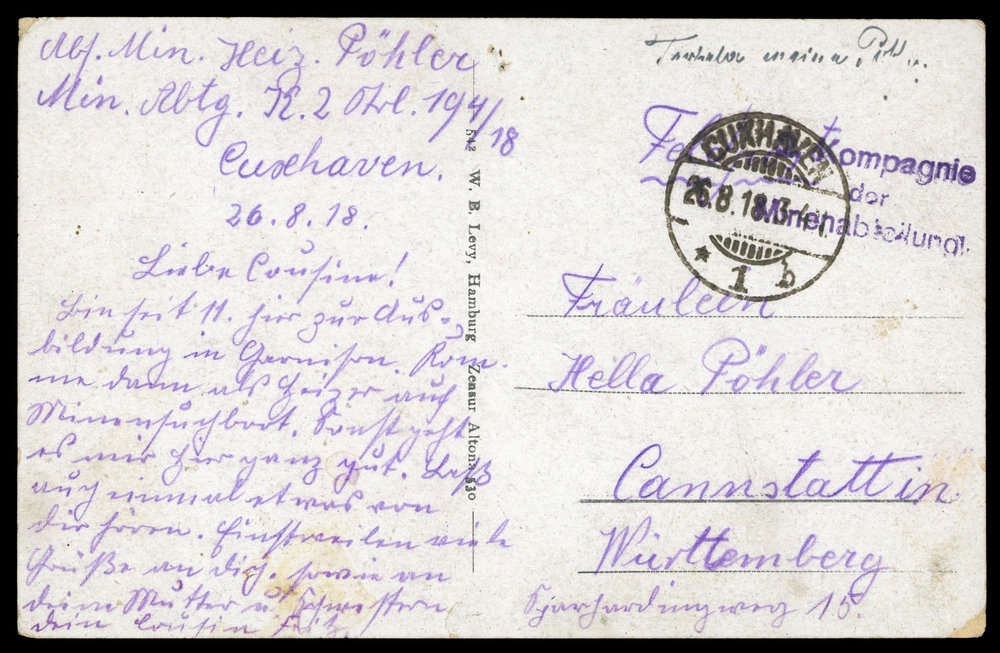 Abs. Min. Heiz. Pöhler
Min. Abtg. K. 2 Ork. 194/18
Cuxhaven.
26.8.18.
Liebe Cousine!
Bin seit 11. hier zur Aus-
bildung in Garnison. Kom-
me dann als Heizer auf
Minensuchboot. Sonst geht
es mir hier ganz gut. Laß
auch einmal etwas von
dir hören. Einstweilen viele
Grüße an dich, sowie an
deine Mutter u. Schwestern
dein Cousin Fritz
542 W. B. Levy, Hamburg Zensur Altona 530
meine
CUXHAVEN
26.8.18. 3-4
* 1 b
Kompagnie
der
Minenabteilung.
Fräulein
Hella Pöhler
Cannstatt in
Württemberg
15.